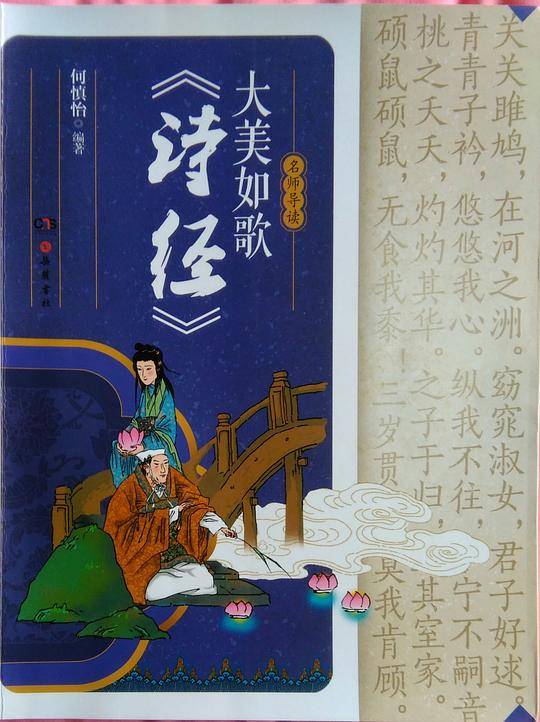 关关雎鸠，在河之洲。窈窕淑女，君子好逑。
青青子衿，悠悠我心。纵我不往，宁不嗣音
桃之夭夭，灼灼其华。之子于归，其室家。
硕鼠硕鼠，无食我黍！三岁贯莫我肯顾。
名师导读
大美如歌
《诗经》
何慎怡 编著
岳麓书社